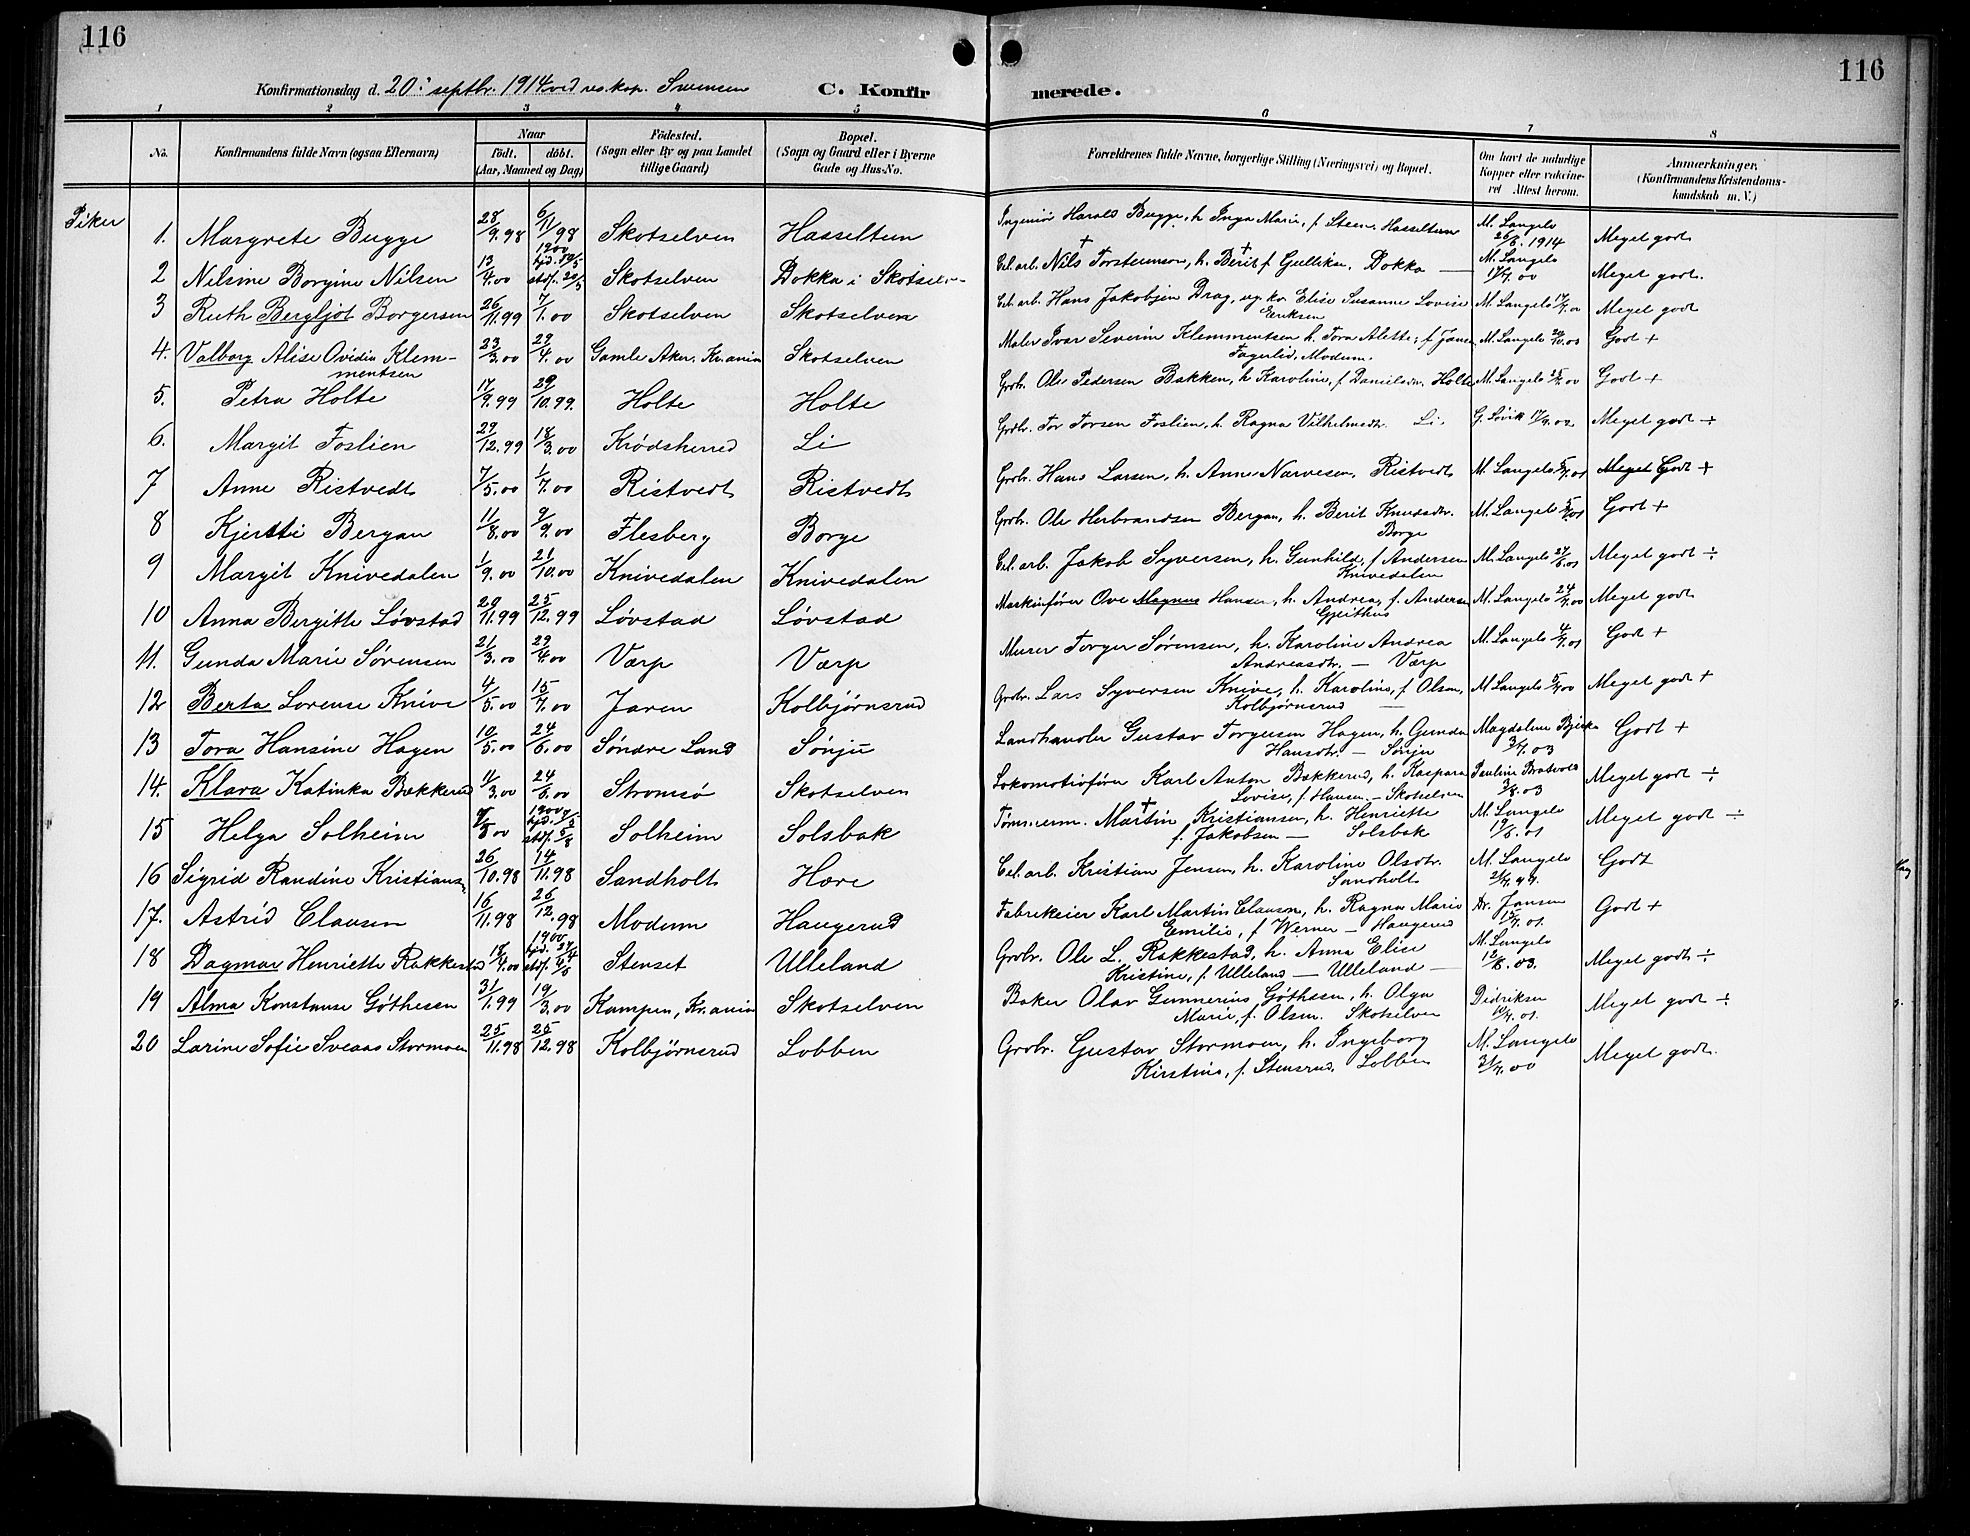 116
116
Konfirmationsdag d. 20: septbr. 1914 ved res. kap. Svensen
C. Konfirmerede.
1 2 3 4 5 6 7 8
No.
Konfirmandens fulde Navn (ogsaa Efternavn)
Naar
Födt. döbt.
(Aar, Maaned og Dag)
Födested.
(Sogn eller By og paa Landet
tillige Gaard)
Bopæl.
(Sogn og Gaard eller i Byerne
Gade og Hus-No.
Forældrenes fulde Navne, borgerlige Stilling (Næringsvei) og Bopæl.
Om havt de naturlige
Kopper eller vakcine-
ret Attest herom.
Anmærkninger,
(Konfirmandens Kristendoms-
kundskab m. V.)
Piker
1. Margrete Bugge 28/9.98 6/11 98 Skotselven Hasseltun Ingeniør Harald Bugge, h. Inga Marie, f. Steen. Hasseltun M. Langelo 26/8. 1914 Meget godt
2 Nilsine Borgine Nilsen 13/4.00 1900 hjd. stdf. 20/5 Skotselven Dokka i Skotselv. Cel. arb. Nils Torstensen, h. Berit f. Gulliksn. Dokka — M. Langelo 17/7.00 Meget godt.
3 Ruth Bergljot Borgersen 26/11.99 7/1.00 Skotselven Skotselven Cel. arb. Hans Jakobsen Drag, ug. kv. Elise Susanne Lovise Eriksen M. Langelo Meget godt
4. Valborg Alise Ovidia Klemmentsen 23/3.00 29/4.00 Gamle Aker. Kr.ania Skotselven Maler Ivar Severin Klemmentsen h. Tora Alette, f. Jansen Fagerlid, Modum. M. Langelo Godt +
5. Petra Holte 17/9.99 29/10.99. Holte Holte Grdbr. Ole Pedersen Bakken, h. Karoline, f. Danielsdtr. Holte M. Langelo Godt +
6. Margit Foslien 29/12.99 18/3.00 Krødsherred Li Grdbr. Tor Torsen Foslien, h. Ragna Vilhelmsdtr. Li. G. Løvik Meget godt ÷
7 Anne Ristvedt 7/5.00 1/7.00 Ristvedt Ristvedt Grdbr. Hans Larsen, h. Anne Narvesen. Ristvedt M. Langelo Meget Godt +
8 Kjersti Bergan 11/8.00 9/9.00 Flesberg Borge Grdbr. Ole Herbrandsen Bergan, h. Berit Knudsdtr. Borge M. Langelo Godt +
9 Margit Knivedalen 1/9.00 21/10.00 Knivedalen Knivedalen Cel. arb. Jakob Syversen, h. Gunhild, f. Andersen Knivedalen M. Langelo Meget godt ÷
10 Anna Bergitte Løvstad 20/11.99 25/12.99 Løvstad Løvstad Maskinfører Ove Magnus Hansen, h. Andrea, f. Andersen Gjeithus M. Langelo Meget godt
11. Gunda Marie Sørensen 21/3.00 29/4.00 Værp Værp Murer Torger Sørensen, h. Karoline Andrea Andreasdtr. — Værp M. Langelo Godt +
12 Berta Lorense Knive 4/5.00 15/7.00 Jaren Kolbjørnsrud Grdbr. Lars Syversen Knive, h. Karoline, f. Olsen, Kolbjørnsrud — M. Langelo Meget godt +
13 Tora Hansine Hagen 10/5.00 24/6.00 Søndre Land Sønju Landhandler Gustav Torgersen Hagen, h. Gunda Hansdtr. — Sønju Magdalene Bjerke Godt +
14. Klara Katinka Bækkerud 1/3.00 24/6.00 Strømsø Skotselven Lokomotivfører Karl Anton Bækkerud, h. Kaspara Lovise, f. Hansen. — Skotselven Pauline Bratvold Meget godt ÷
15 Helga Solheim /8 00 1900 hjd. stdf. 5/8 Solheim Solsbak Tømmerm. Martin Kristiansen, h. Henriette f. Jakobsen — Solsbak M. Langelo 19/6.01 Meget godt ÷
16 Sigrid Randine Kristians. 26/10.98 14/11.98 Sandholt Hære Cel. arb. Kristian Jensen, h. Karoline Olsdtr. Sandholt M. Langelo Godt
17. Astrid Clausen 16/11.98 26/12.98 Modum Haugerud Fabrikeier Karl Martin Clausen, h. Ragna Marie Emilie, f. Werner — Haugerud Dr. Jansen 15/7.01. Godt +
18 Dagmar Henriette Rakkestad 18/4.00 1900 hjd. 27/4 stdf. Stenset Ulleland Grdbr. Ole L. Rakkestad, h. Anna Elise Kristine, f. Ulleland — Ulleland — M. Langelo 12/8.03. Meget godt ÷
19 Alma Konstanse Göthesen 31/1.99 19/3.00 Kampen, Kr.ania Skotselven Baker Olav Gunnerius Göthesen, h. Olga Marie, f. Olsen. Skotselven Didriksen 10/7.01. Meget godt ÷
20 Larine Sofie Sveaas Stormoen 25/11.98 25/12.98 Kolbjørnsrud Lobben Grdbr. Gustav Stormoen, h. Ingeborg Kirstine, f. Stensrud. Lobben M. Langelo 31/7.00 Meget godt.